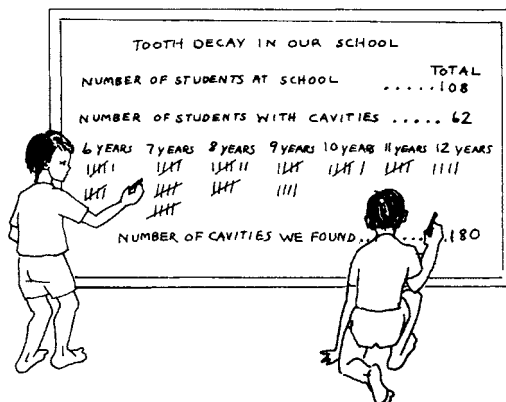 TOOTH DECAY IN OUR SCHOOL
TOTAL
NUMBER OF STUDENTS AT SCHOOL ..... 108
NUMBER OF STUDENTS WITH CAVITIES ..... 62
6 YEARS 7 YEARS 8 YEARS 9 YEARS 10 YEARS 11 YEARS 12 YEARS
NUMBER OF CAVITIES WE FOUND ......... 180